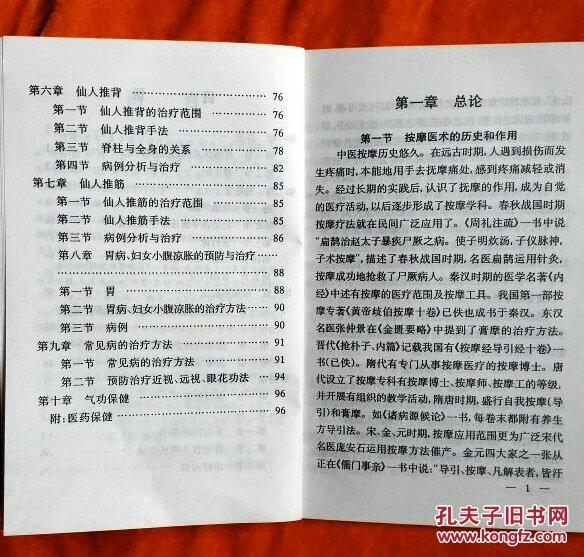 第六章 仙人推背 …………………… 76
第一节 仙人推背的治疗范围 …………… 76
第二节 仙人推背手法 …………………… 76
第三节 脊柱与全身的关系 ……………… 78
第四节 病例分析与治疗 ………………… 82
第七章 仙人推筋 …………………… 85
第一节 仙人推筋的治疗范围 …………… 85
第二节 仙人推筋手法 …………………… 85
第三节 病例分析与治疗 ………………… 86
第八章 胃病、妇女小腹凉胀的预防与治疗……
…………………… 88
第一节 胃 …………………… 88
第二节 胃病、妇女小腹凉胀的治疗方法 … 90
第三节 病例 …………………… 90
第九章 常见病的治疗方法 …………… 91
第一节 常见病的治疗方法 ……………… 91
第二节 预防治疗近视、远视、眼花功法 … 94
第十章 气功保健 …………………… 96
附:医药保健 …………………… 96
第一章 总论
第一节 按摩医术的历史和作用
中医按摩历史悠久。在远古时期,人遇到损伤而发
生疼痛时,本能地用手去抚摩痛处,感到疼痛减轻或消
失。经过长期的实践后,认识了抚摩的作用,成为自觉
的医疗活动,以后逐步形成了按摩学科。春秋战国时期
按摩疗法就在民间广泛应用了。《周礼注疏》一书中说
“扁鹊治赵太子暴疾尸厥之病。使子明炊汤,子仪脉神,
子术按摩”,描述了春秋战国时期,名医扁鹊运用针灸、
按摩成功地抢救了尸厥病人。秦汉时期的医学名著《内
经》中述有按摩的医疗范围及按摩工具。我国第一部按
摩专著《黄帝歧伯按摩十卷》已佚也成书于秦汉。东汉
名医张仲景在《金匮要略》中提到了膏摩的治疗方法。
晋代《抢朴子、内篇》记载我国有《按摩经导引经十卷》一
书(已佚)。隋代有专门从事按摩医疗的按摩博士。唐
代设立了按摩专科有按摩博士、按摩师、按摩工的等级,
并开展有组织的教学活动,隋唐时期,盛行自我按摩(导
引)和膏摩。如《诸病源候论》一书,每卷末都附有养生
方导引法。宋、金、元时期,按摩应用范围更为广泛宋代
名医庞安石运用按摩方法催产。金元四大家之一张从
正在《儒门事亲》一书中说:“导引、按摩、凡解表者,皆汗
— 1 —
孔夫子旧书网